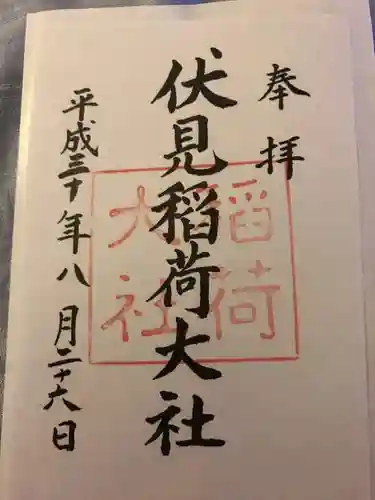 奉拝
伏見稲荷大社
稲荷
大社
平成三十年八月二十六日